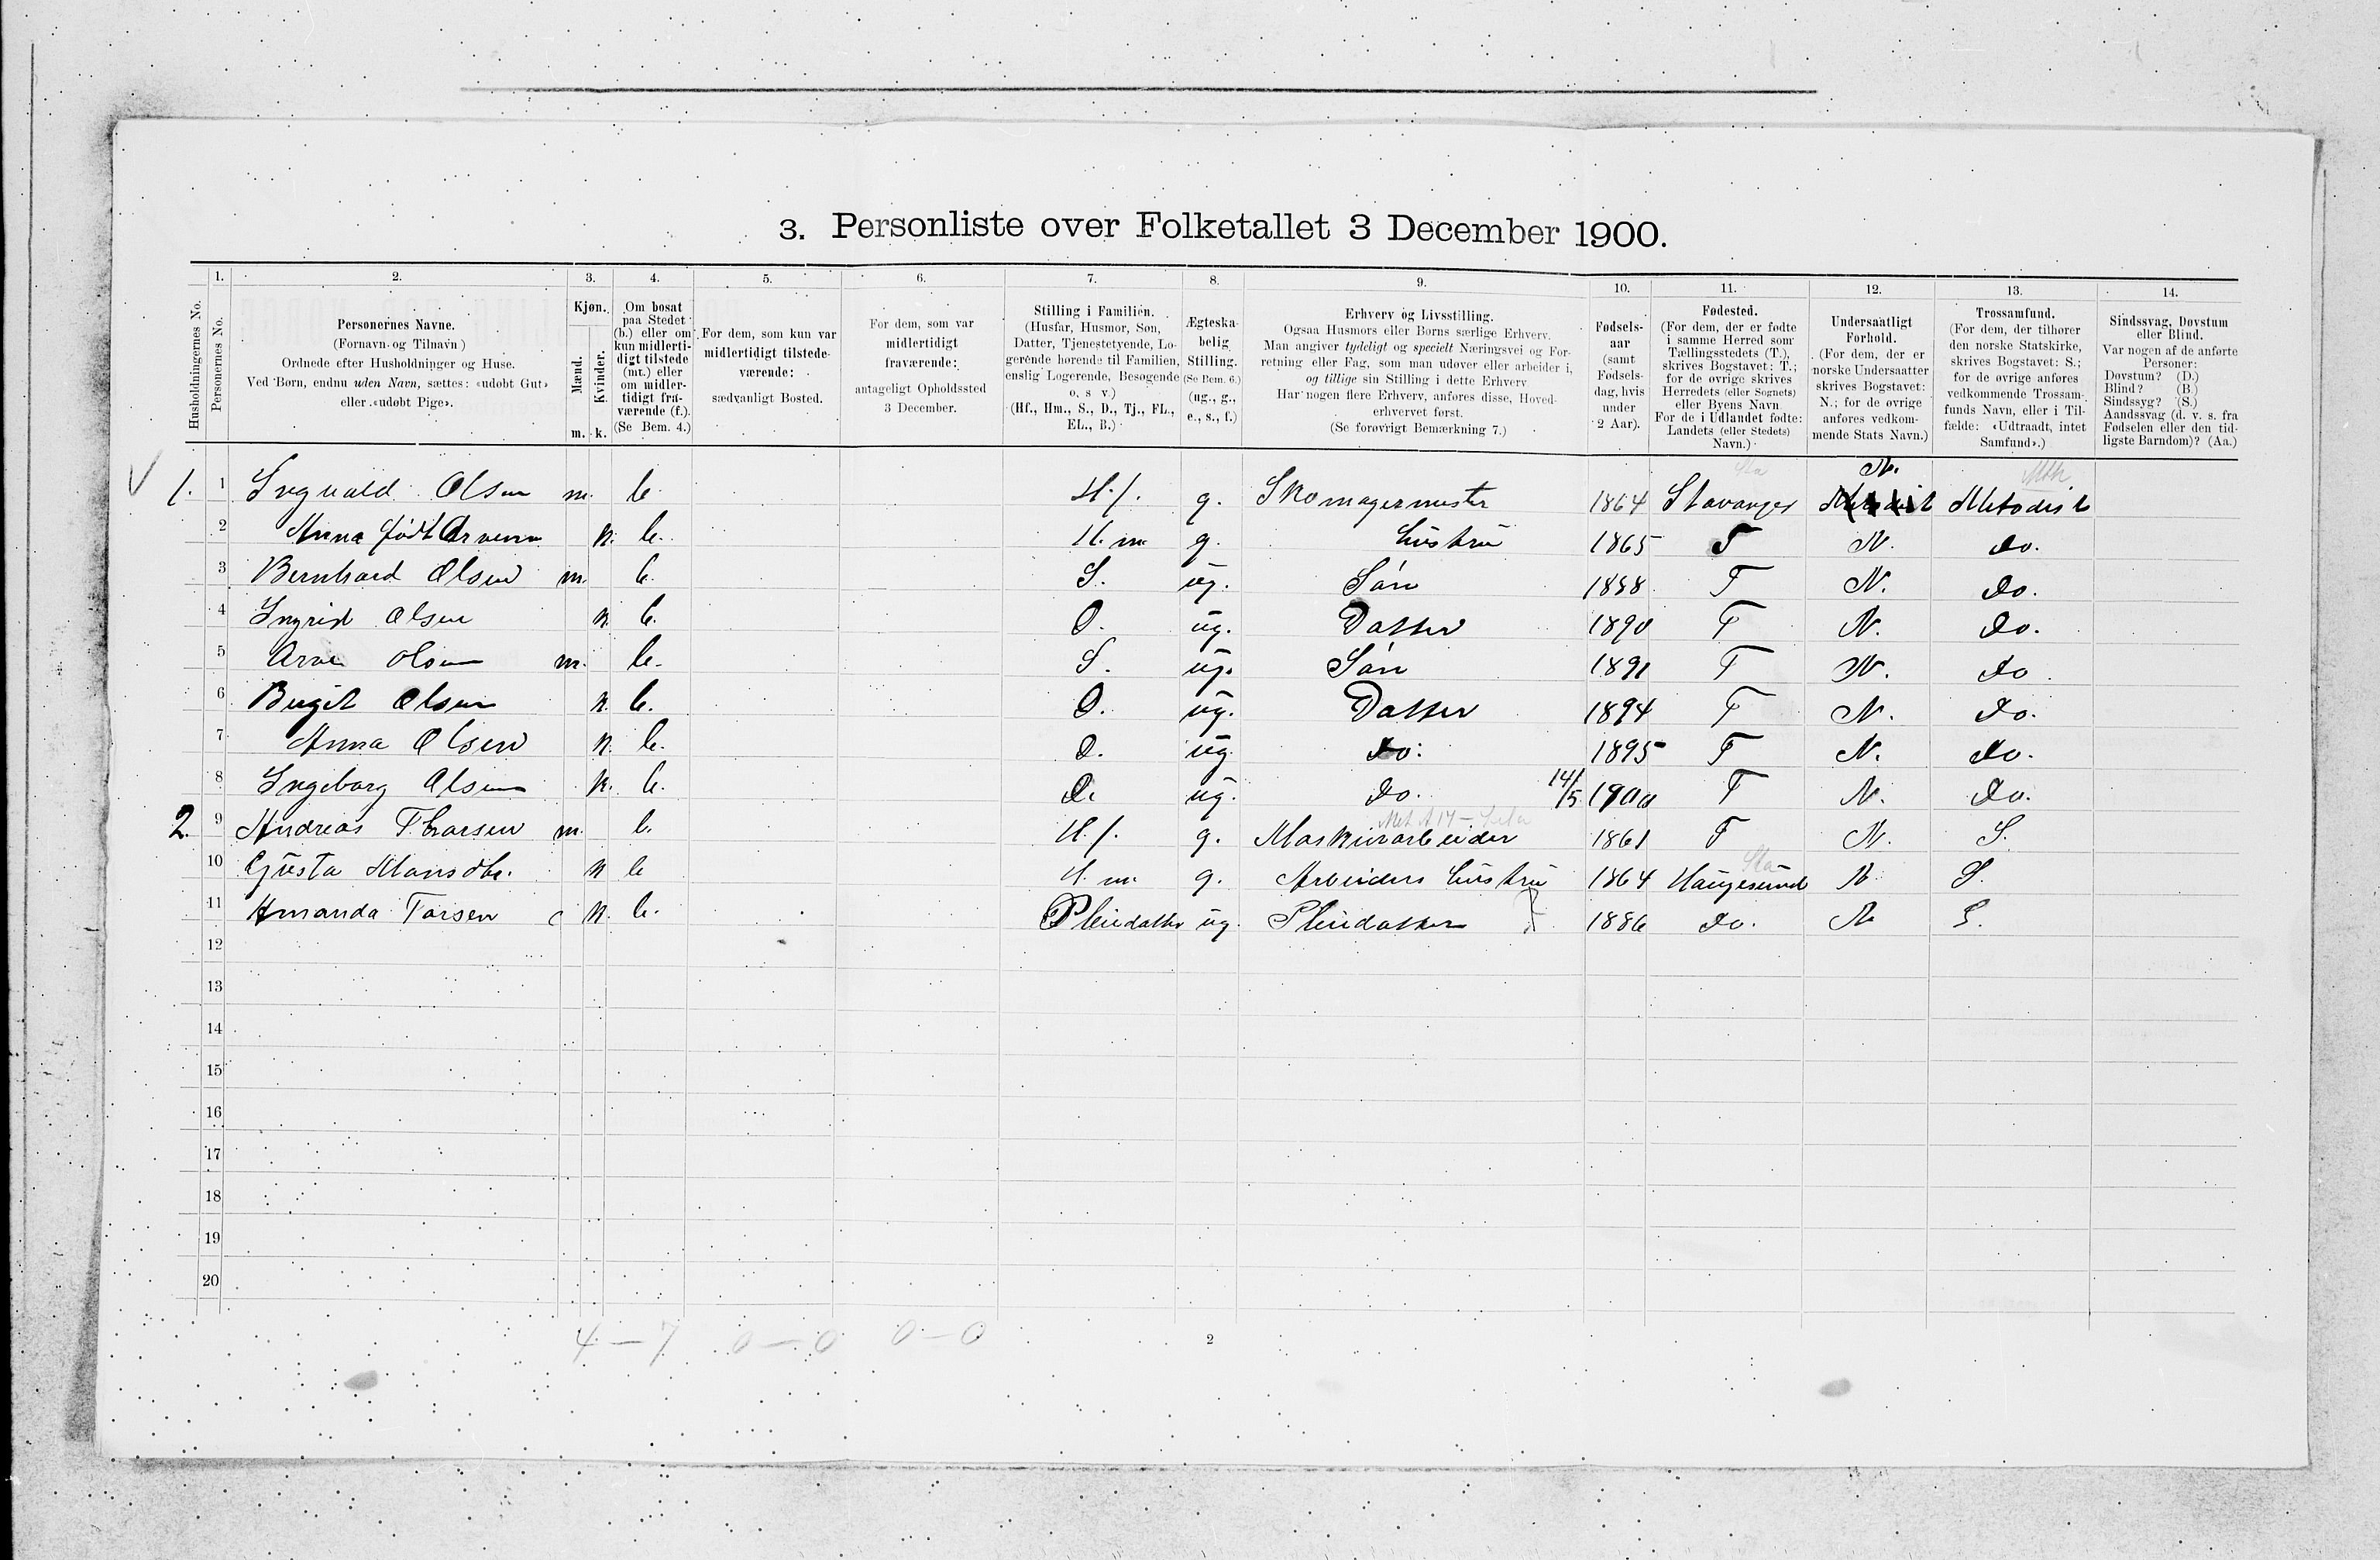 3. Personliste over Folketallet 3 December 1900.
1. 2. 3. 4. 5. 6. 7. 8. 9. 10. 11. 12. 13. 14.
Husholdningernes No.
Personernes No.
Personernes Navne.
(Fornavn og Tilnavn)
Ordnede efter Husholdninger og Huse.
Ved Børn, endnu uden Navn, sættes: «udøbt Gut»
eller «udøbt Pige».
Kjøn.
Mænd.
Kvinder.
m. k.
Om bosat
paa Stedet
(b.) eller om
kun midlerti-
digt tilstede
(mt.) eller
om midler-
tidigt fra-
værende (f.).
(Se Bem. 4.)
For dem, som kun var
midlertidigt tilstede-
værende:
sædvanligt Bosted.
For dem, som var
midlertidigt
fraværende:
antageligt Opholdssted
3 December.
Stilling i Familien.
(Husfar, Husmor, Søn,
Datter, Tjenestetyende, Lo-
gerende hørende til Familien,
enslig Logerende, Besøgende
o. s v.)
(Hf., Hm., S., D., Tj., FL.,
EL., B.)
Ægteska-
belig
Stilling.
(Se Bem. 6.)
(ug., g.,
e., s., f.)
Erhverv og Livsstilling.
Ogsaa Husmors eller Børns særlige Erhverv.
Man angiver tydeligt og specielt Næringsvei og For-
retning eller Fag, som man udøver eller arbeider i,
og tillige sin Stilling i dette Erhverv
Har nogen flere Erhverv, anføres disse, Hoved-
erhvervet først.
(Se forøvrigt Bemærkning 7.)
Fødsels-
aar
(samt
Fødsels-
dag, hvis
under
2 Aar).
Fødested.
(For dem, der er fødte
i samme Herred som
Tællingsstedets (T.),
skrives Bogstavet: T.;
for de øvrige skrives
Herredets (eller Sognets)
eller Byens Navn
For de i Udlandet fødte:
Landets (eller Stedets)
Navn.)
Undersaatligt
Forhold.
(For dem, der er
norske Undersaatter
skrives Bogstavet:
N.; for de øvrige
anføres vedkom-
mende Stats Navn.)
Trossamfund.
(For dem, der tilhører
den norske Statskirke,
skrives Bogstavet: S.;
for de øvrige anføres
vedkommende Trossam-
funds Navn, eller i Til-
fælde: «Udtraadt, intet
Samfund».)
Sindssvag, Døvstum
eller Blind.
Var nogen af de anførte
Personer:
Døvstum? (D.)
Blind? (B.)
Sindssyg? (S.)
Aandssvag (d. v. s. fra
Fødselen eller den tid-
ligste Barndom)? (Aa.)
Sta N. Mth
1. 1 Ingvald Olsen m. b. H.f. g. Skomagermester 1864 Stavanger Metodist
2 Anna født k. b. H.m. g. Hustru 1865 T N. do.
3 Bernhard Olsen m. b. S. ug. Søn 1888 T N. do.
4 Ingrid Olsen k. b. D. ug. Datter 1890 T N. do.
5 Arne Olsen m. b. S. ug. Søn 1891 T N. do
6 Birgit Olsen k. b. D. ug. Datter 1894 T N. do.
7 Anna Olsen k. b. D. ug. do. 1895 T N. do.
8 Ingeborg Olsen k. b. D. ug. do. 14/5 1900 T N. do.
2. 9 Andreas Thorsen m. b. H.f. g. Maskinarbeider 1861 T N. S.
10 Gusta k b H m g. Arbeiders Hustru 1864 Haugesund N S.
11 Amanda Torsen k. b. Pleiedatter ug. Pleiedatter 1886 do. N S.
12
13
14
15
16
17
18
19
20
4 — 7 0 — 0 0 — 0
2